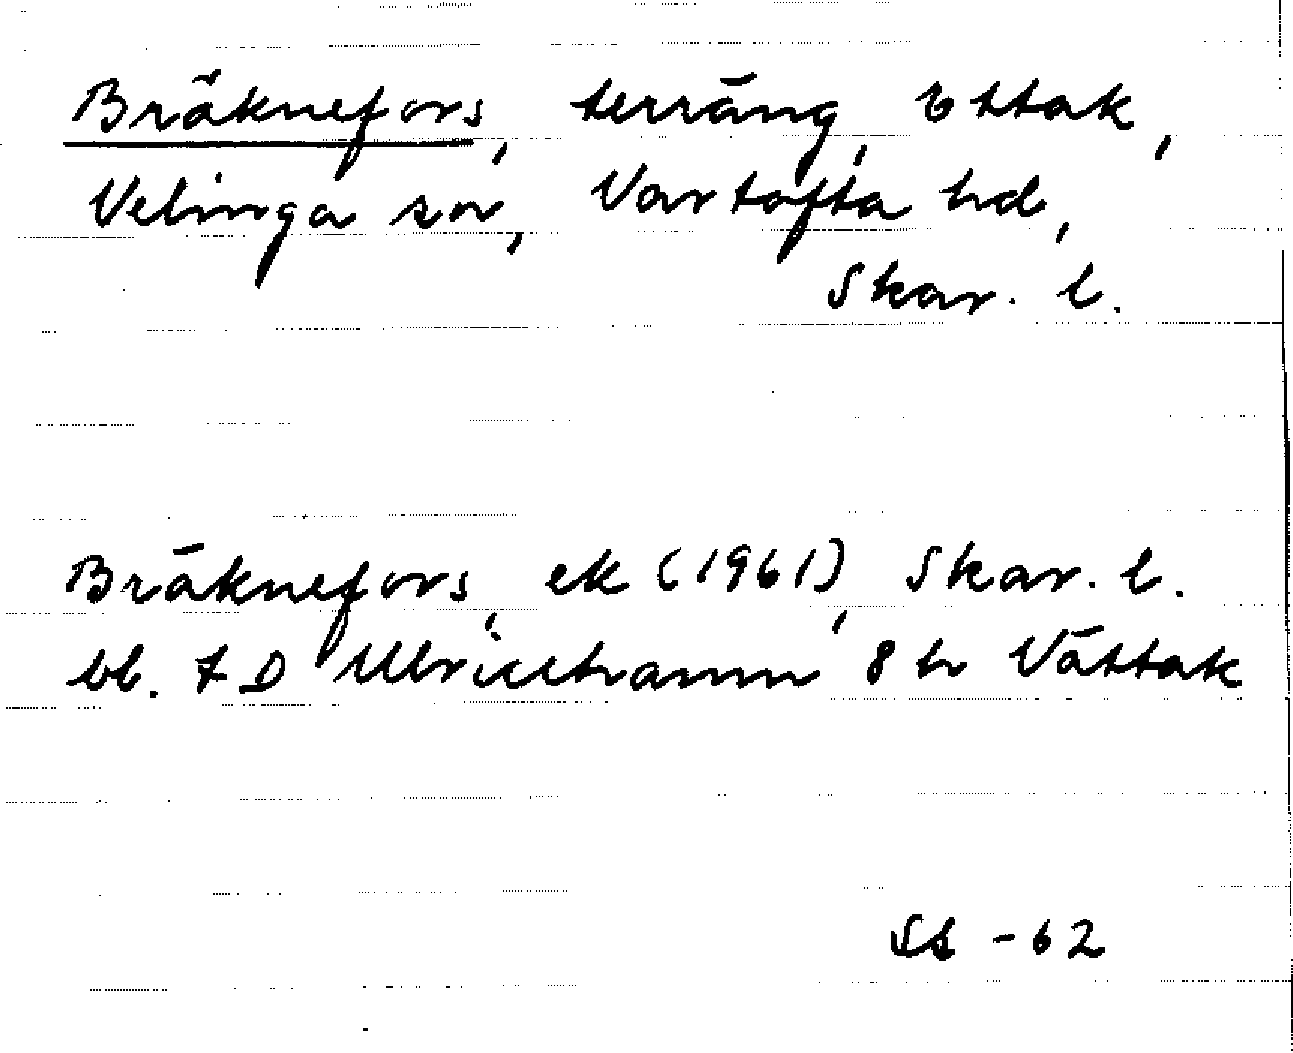 Bräknefors, terräng, Ottak,
Velinga sn, Vartofta hd,
Skar. l.
Bräknefors, ek (1961), Skar. l.
bl. 7D Ulricehamn 8 h Våttak
SL -62